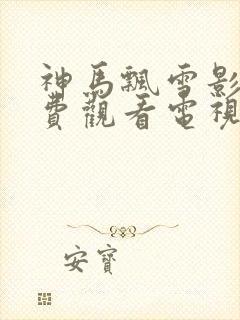 神馬飄雪影
費觀看電視
安寶